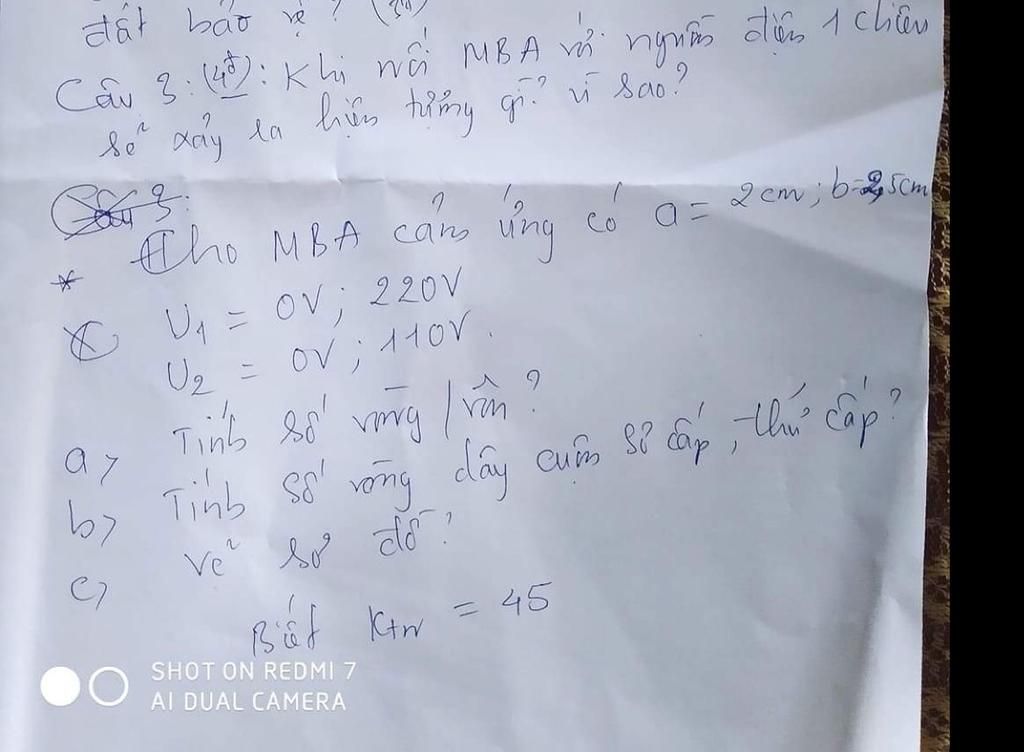 đất bảo vệ? (3đ)
Câu 3: (4đ): Khi nối MBA với nguồn điện 1 chiều
sẽ xảy ra hiện tượng gì? vì sao?
* Cho MBA cảm ứng có a = 2cm; b=2,5cm
U1 = 0V; 220V
U2 = 0V; 110V.
a> Tính số vòng/vôn?
b> Tính số vòng dây cuộn sơ cấp, thứ cấp?
c> Vẽ sơ đồ?
Biết Ktw = 45
SHOT ON REDMI 7
AI DUAL CAMERA